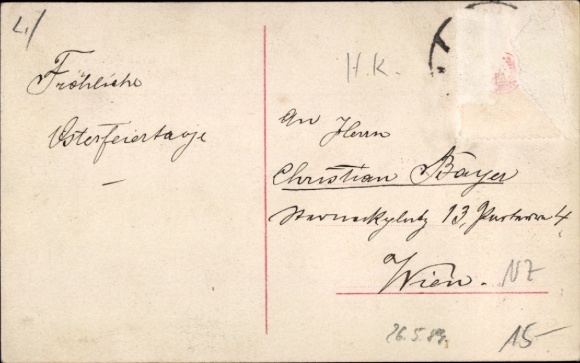 4/
Fröhliche
Osterfeiertage
H.K.
An Herrn
Christian Bayer
Sterneckplatz 13, Parterre 4
Wien.
NZ
26.5.89.
15-